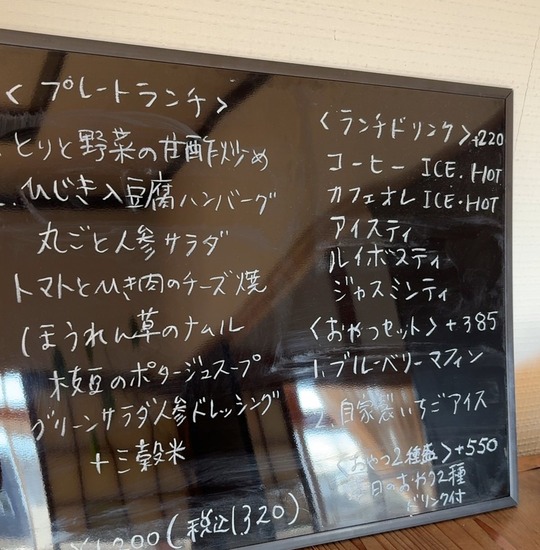 <プレートランチ>
とりと野菜の甘酢炒め
ひじき入豆腐ハンバーグ
丸ごと人参サラダ
トマトとひき肉のチーズ焼
ほうれん草のナムル
枝豆のポタージュスープ
グリーンサラダ人参ドレッシング
+三穀米
(税込1320)
<ランチドリンク>+220
コーヒー ICE.HOT
カフェオレ ICE・HOT
アイスティ
ルイボスティ
ジャスミンティ
<おやつセット>+385
1.ブルーベリーマフィン
2.自家製いちごアイス
<おやつ2種盛>+550
日のおやつ2種
ドリンク付